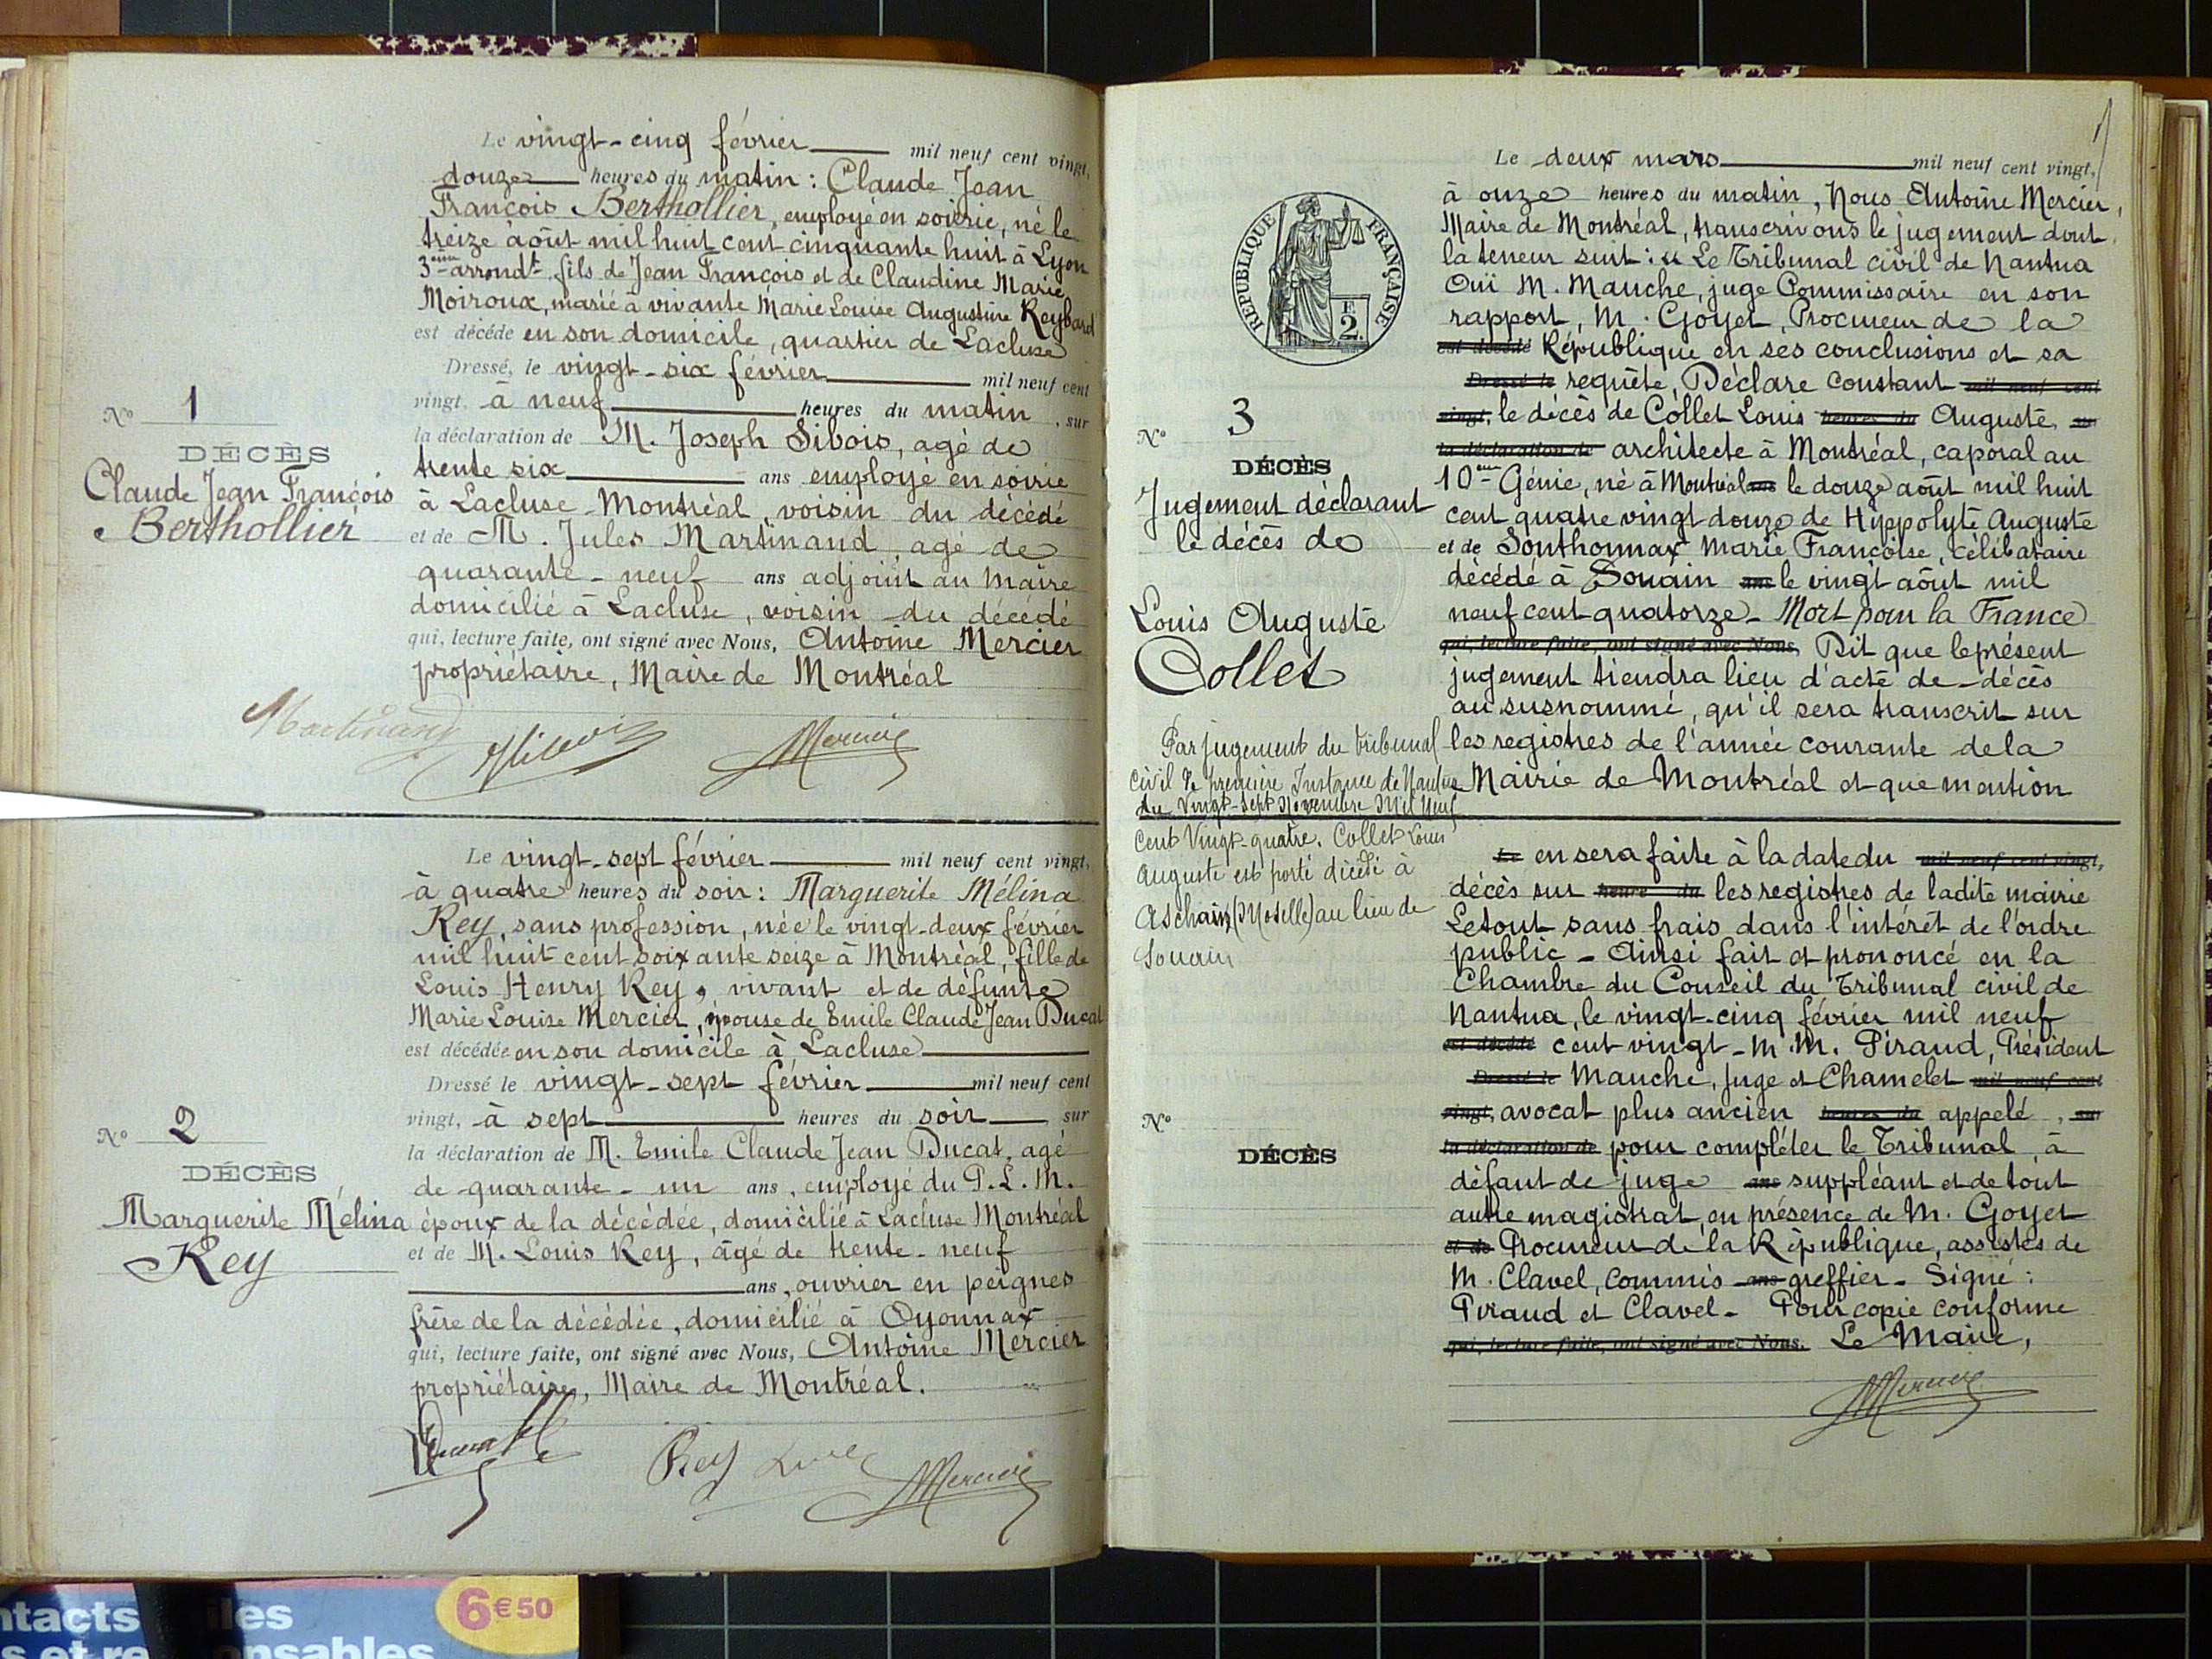 Le vingt-cinq février mil neuf cent vingt,
douze heures du matin : Claude Jean
François Berthollier, employé en soirie, né le
treize août mil huit cent cinquante huit à Lyon
3ème arrondt fils de Jean François et de Claudine Marie
Moiroux, marié à vivante Marie Louise Augustine Reybard
est décédé en son domicile, quartier de Lacluse
Dressé, le vingt-six février mil neuf cent
vingt, à neuf heures du matin, sur
la déclaration de M. Joseph Sibois, agé de
trente six ans employé en soirie
à Lacluse-Montréal, voisin du décédé
et de M. Jules Martinand, agé de
quarante-neuf ans adjoint au Maire
domicilié à Lacluse, voisin du décédé
qui, lecture faite, ont signé avec Nous, Antoine Mercier
propriétaire, Maire de Montréal
No 1
DÉCÈS
Claude Jean François
Berthollier
Martinand Sibois Mercier
Le vingt-sept février mil neuf cent vingt,
à quatre heures du soir : Marguerite Mélina
Rey, sans profession, née le vingt-deux février
mil huit cent soixante seize à Montréal, fille de
Louis Henry Rey, vivant et de défunte
Marie Louise Mercier, épouse de Emile Claude Jean Ducat
est décédée en son domicile à Lacluse
Dressé le vingt-sept février mil neuf cent
vingt, à sept heures du soir, sur
la déclaration de M. Emile Claude Jean Ducat, agé
de quarante-un ans, employé du P.L.M.
époux de la décédée, domicilié à Lacluse Montréal
et de M. Louis Rey, âgé de trente-neuf
ans, ouvrier en peignes
frère de la décédée, domicilié à Oyonnax
qui, lecture faite, ont signé avec Nous, Antoine Mercier
propriétaire, Maire de Montréal.
No 2
DÉCÈS
Marguerite Mélina
Rey
Rey Mercier
Le deux mars mil neuf cent vingt,
à onze heures du matin, Nous Antoine Mercier,
Maire de Montréal, transcrivons le jugement dont
la teneur suit : « Le Tribunal civil de Nantua
Ouï M. Mauche, juge Commissaire en son
rapport, M. Goyet, Procureur de la
est décédé République en ses conclusions et sa
Dressé le requête, Déclare constant mil neuf cent
vingt, le décès de Collet Louis heures du Auguste, sur
la déclaration de architecte à Montréal, caporal au
10ème Génie, né à Montréal ans le douze août mil huit
cent quatre vingt douze de Hyppolyte Auguste
et de Sonthonnax Marie Françoise, célibataire
décédé à Souain ans le vingt août mil
neuf cent quatorze - Mort pour la France
qui, lecture faite, ont signé avec Nous, Dit que le présent
jugement tiendra lieu d'acte de décès
au susnommé, qu'il sera transcrit sur
les registres de l'année courante de la
Mairie de Montréal et que mention
Le en sera faite à la date du mil neuf cent vingt,
décès sur heure du les registres de ladite mairie
Le tout sans frais dans l'intérêt de l'ordre
public - Ainsi fait et prononcé en la
Chambre du Conseil du Tribunal civil de
Nantua, le vingt-cinq février mil neuf
est décédé cent vingt - M.M. Piraud, Président
Dressé le Mauche, Juge et Chamelet mil neuf cent
vingt, avocat plus ancien heures du appelé, sur
la déclaration de pour compléter le Tribunal, à
défaut de juge ans suppléant et de tout
autre magistrat, en présence de M. Goyet
et de Procureur de la République, assistés de
M. Clavel, Commis ans greffier - Signé :
Piraud et Clavel - Pour copie conforme
qui, lecture faite, ont signé avec Nous. Le Maire,
Mercier
RÉPUBLIQUE FRANÇAISE
F
2.
No 3
DÉCÈS
Jugement déclarant
le décès de
Louis Auguste
Collet
Par jugement du tribunal
civil de première Instance de Nantua
du Vingt-Sept Novembre Mil Neuf
Cent Vingt-quatre. Collet Louis
Auguste est porté décédé à
Aschain (Moselle) au lieu de
Souain
No
DÉCÈS
ntacts iles
s et re onsables
6€50